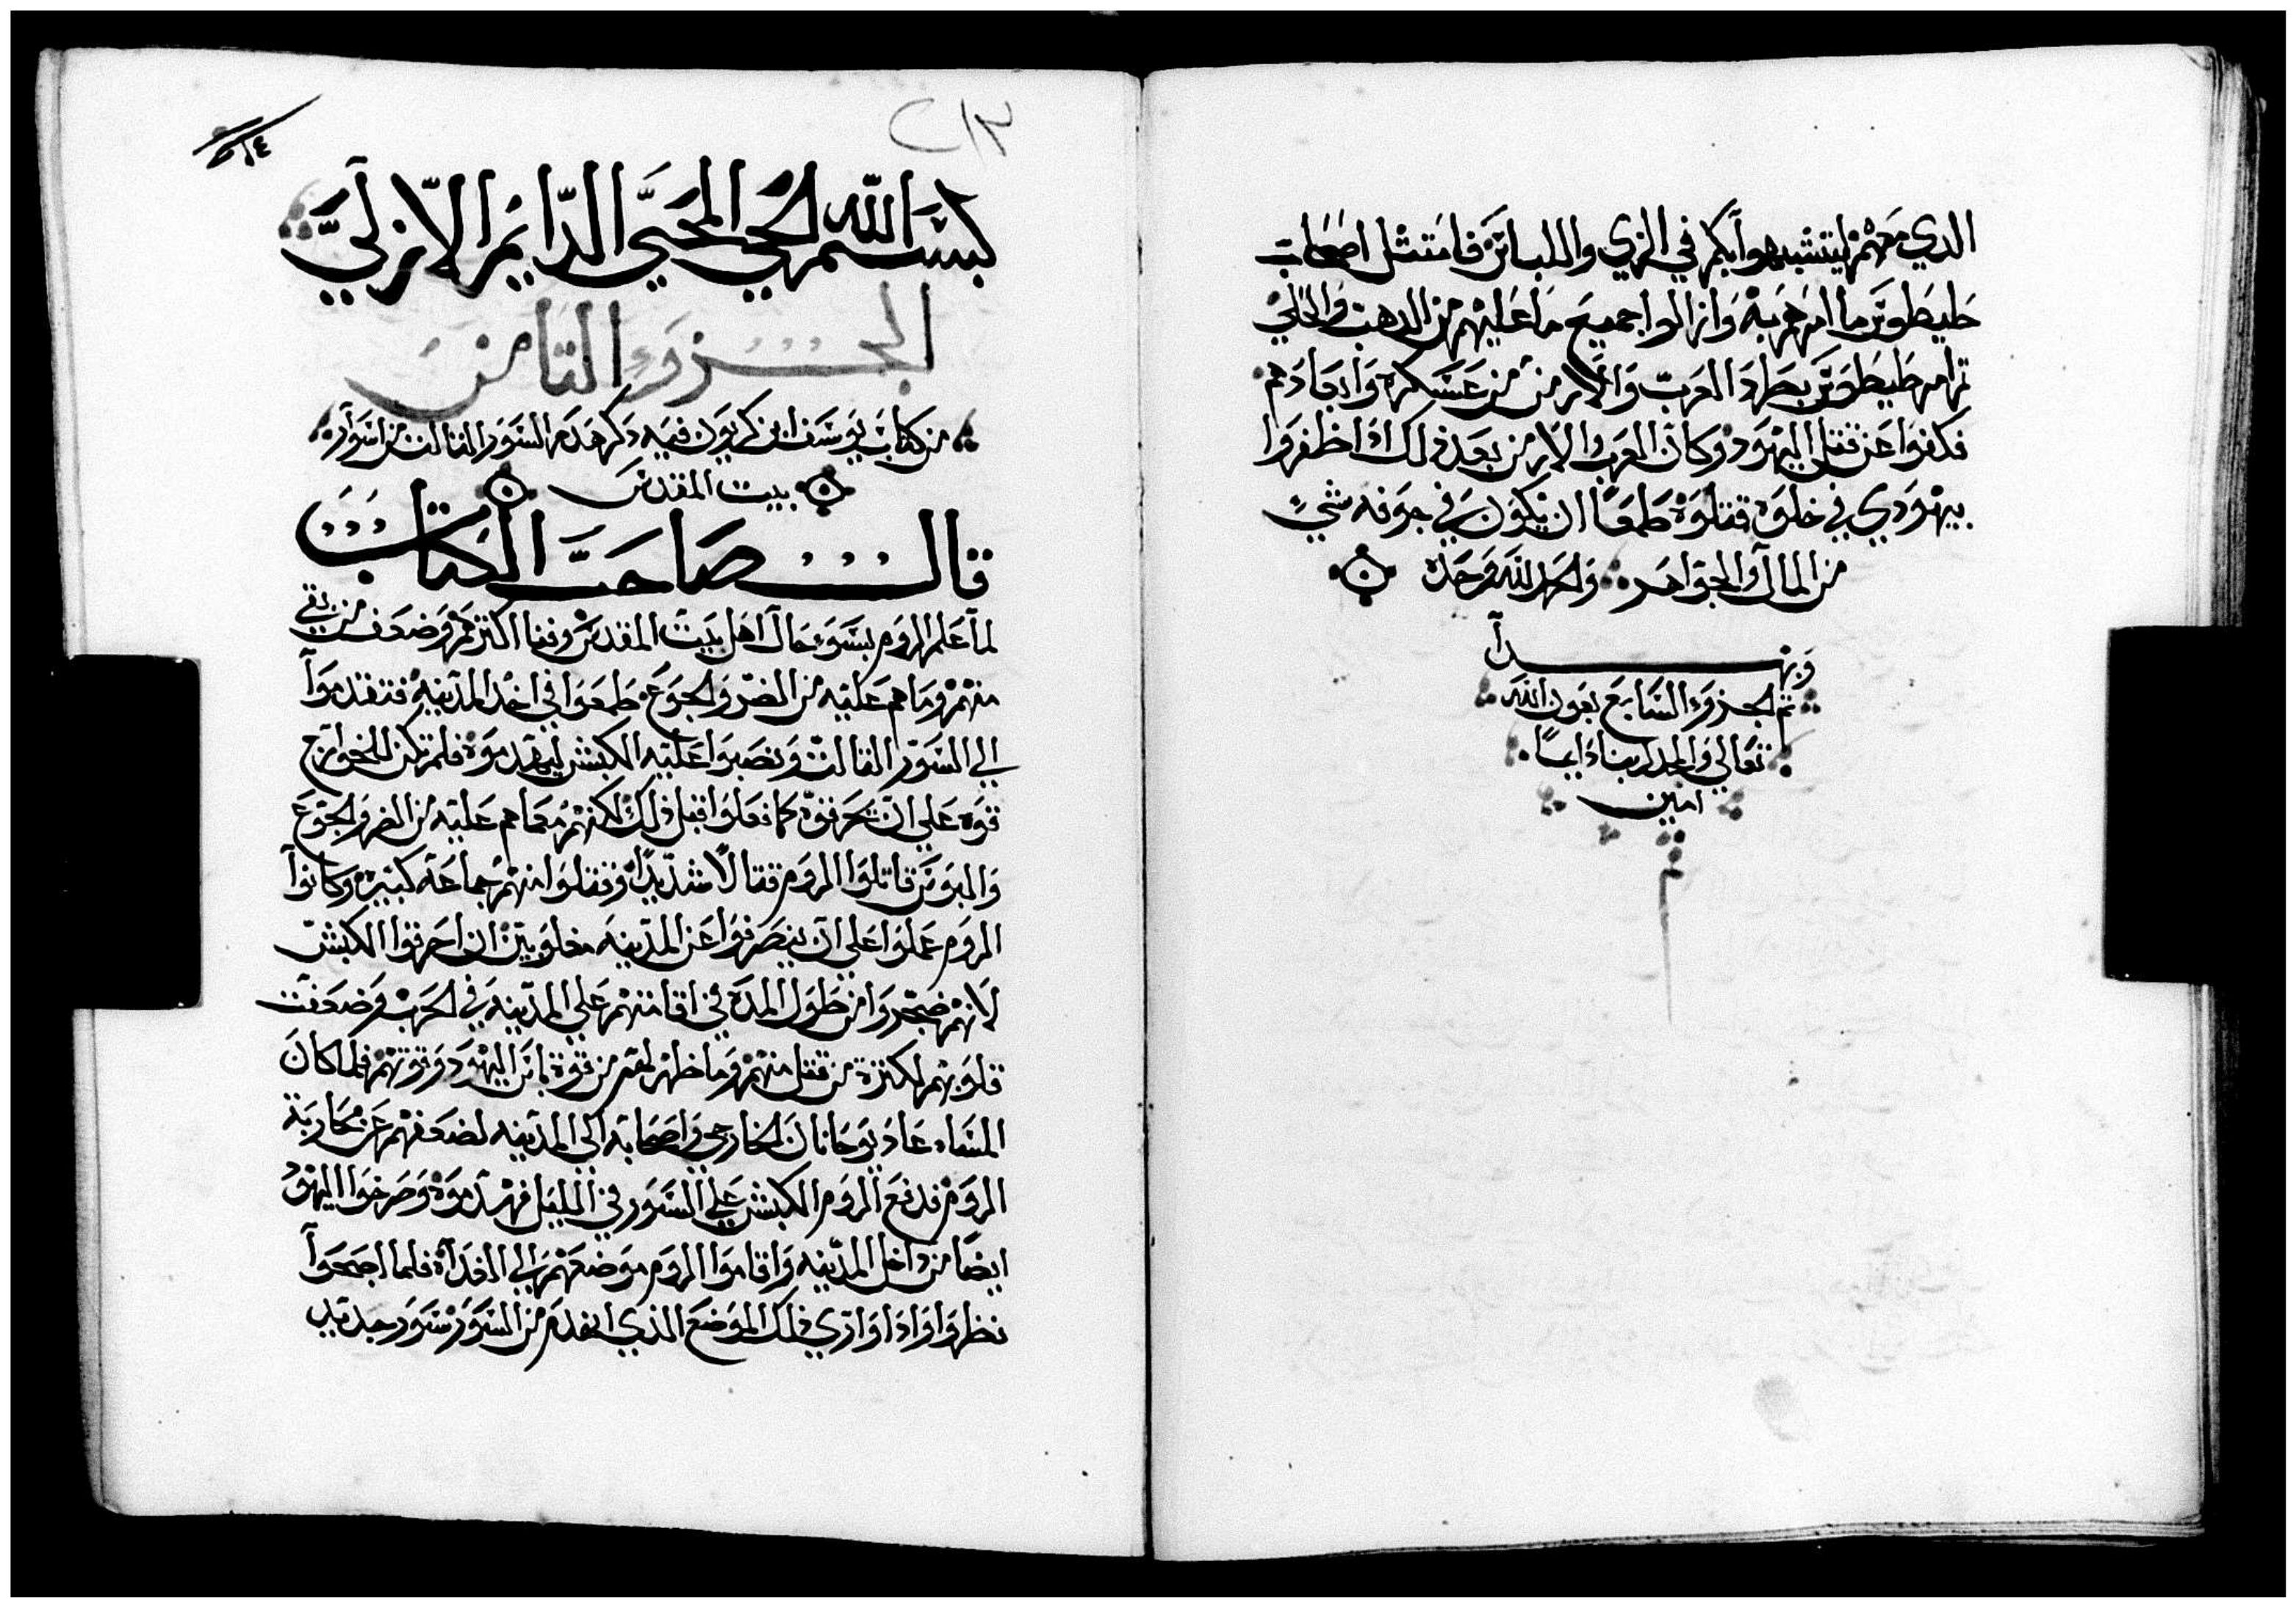 الدي معهم ليتشبهوا بكم في الزي واللباس فامتثل اصحاب
طيطوس ما امرهم به وازالوا جميع ما عليهم من الدهب والحلي
تم امر طيطوس بطرد العرب والارمن من عسكره وابعادهم
فكفوا عن قتل اليهود وكان العرب والارمن بعد ذلك اذا ظفروا
بيهودي في خلوه قتلوه طمعا ان يكون في جوفه شي
من المال والجواهر والحمد لله وحده
وبهدا
تم الجزو السابع بعون الله
تعالي والمجد لربنا دايما
امين
٢١٣
بسم الله الحي المحيي الدايم الازلي
الجزو التامن
من كتاب يوسف ابن كريون فيه دكر هدم السور التالت من اسوار
بيت المقدس
قال صاحب الكتاب
لما علم الروم بسوء حال اهل بيت المقدس وفنا اكترهم وضعف من بقي
منهم وما هم عليه من الضر والجوع طمعوا في اخد المدينه فتقدموا
الي السور التالت ونصبوا عليه الكبش ليهدموه فلم تكن للخوارج
قوه علي ان تحرقه كما فعلوا قبل ذلك لكنهم مع ما هم عليه من الضر والجوع
والبوس قاتلوا الروم قتالا شديدا وقتلوا منهم جماعه كبيره وكانوا
الروم عملوا علي ان ينصرفوا عن المدينه مغلوبين ان احرقوا الكبش
لانهم ضجروا من طول المده في اقامتهم علي المدينه في الحرب وضعفت
قلوبهم لكترة من قتل منهم وما ظهر لهم من قوة باس اليهود وقوتهم فلما كان
المساء عاد يوحانان الخارجي واصحابه الي المدينه لضعفهم عن محاربة
الروم فدفع الروم الكبش علي السور في الليل فهدموه وصرخوا اليهود
ايضا من داخل المدينه واقاموا الروم موضعهم الي الغداه فلما اصبحوا
نظروا وادا وازي ذلك الموضع الذي انهدم من السور سور جديد